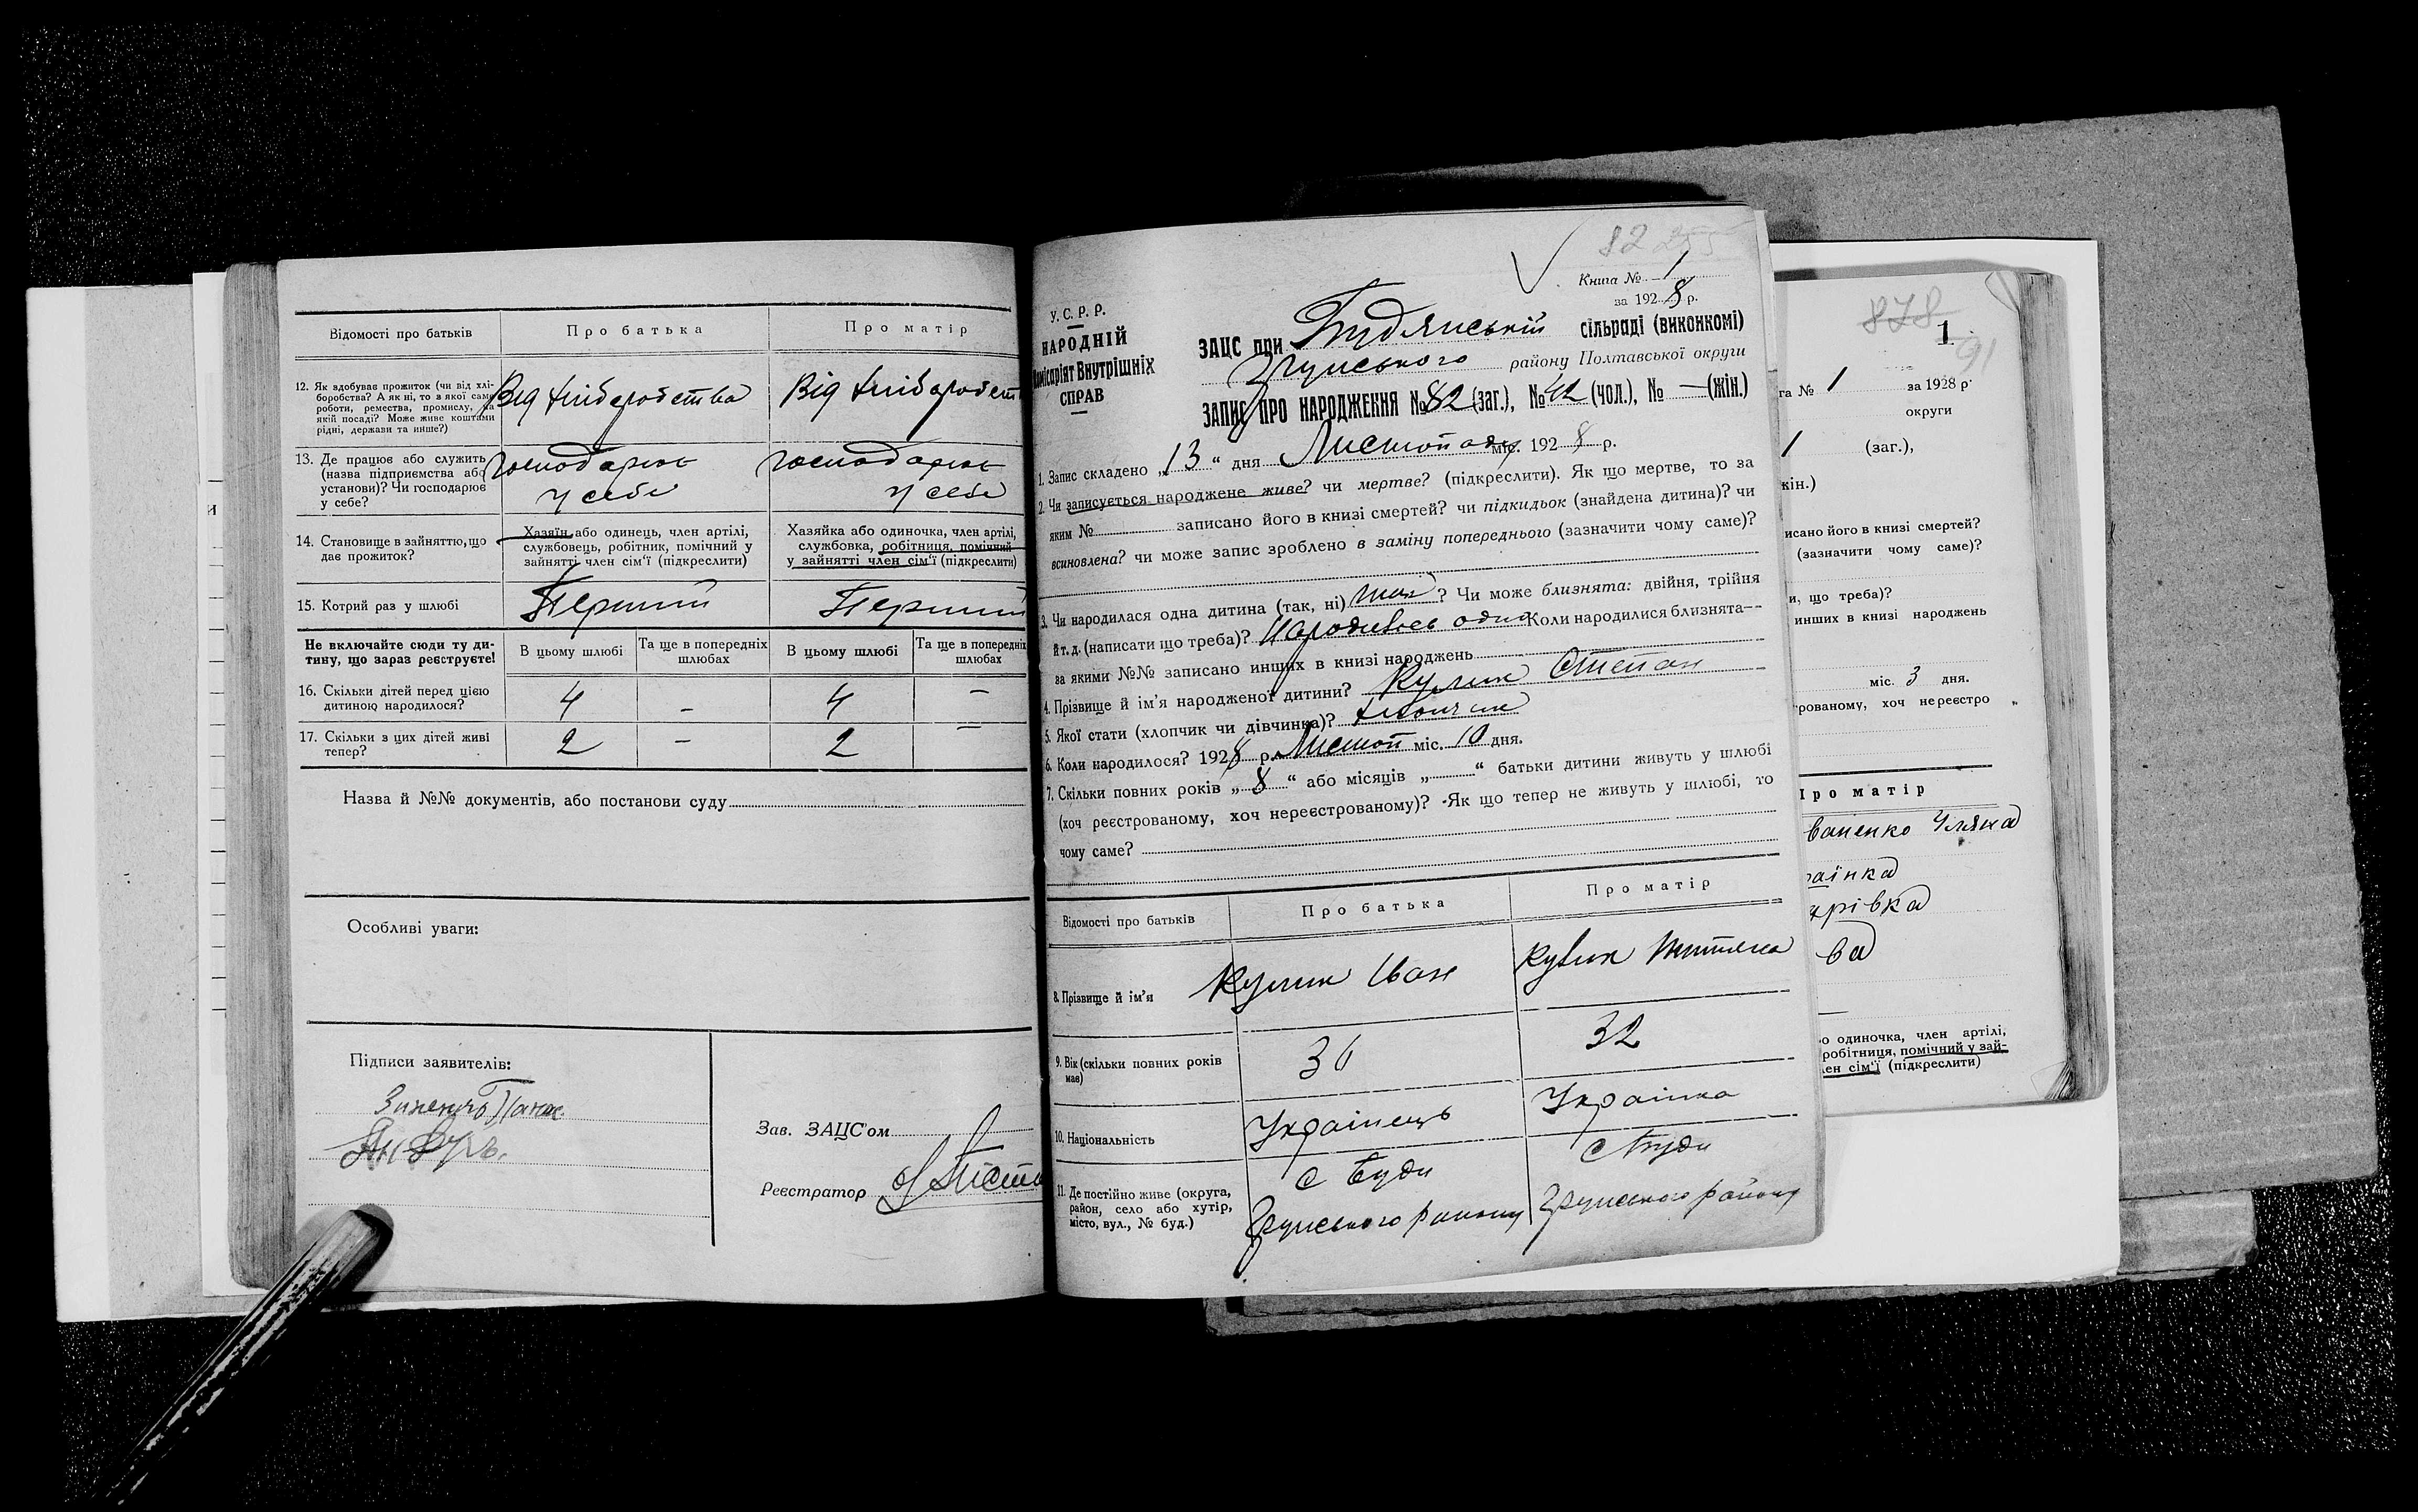 Відомості про батьків
Про батька
Про матір
12. Як здобуває прожиток (чи від хлі-
боробства? А як ні, то з якої саме
роботи, ремества, промислу, на
якій посаді? Може живе коштами
рідні, держави та инше?)
Від хліборобства
Від хліборобст
13. Де працює або служить
(назва підприємства або
установи)? Чи господарює
у себе?
господарює
у себе
господарює
у себе
14. Становище в зайняттю, що
дає прожиток?
Хазяїн або одинець, член артілі,
службовець, робітник, помічний у
зайнятті член сім'ї (підкреслити)
Хазяйка або одиночка, член артілі,
службовка, робітниця, помічний
у зайнятті член сім'ї (підкреслити)
15. Котрий раз у шлюбі
Перший
Перший
Не включайте сюди ту ди-
тину, що зараз реєструєте!
В цьому шлюбі
Та ще в попередніх
шлюбах
В цьому шлюбі
Та ще в попередніх
шлюбах
16. Скільки дітей перед цією
дитиною народилося?
4 - 4 -
17. Скільки з цих дітей живі
тепер?
2 - 2 -
Назва й №№ документів, або постанови суду
Особливі уваги:
Підписи заявителів:
Зав. ЗАЦС'ом
Реєстратор
82
Книга № 1
за 1928 р.
У. С. Р. Р.
НАРОДНІЙ
Комісаріят Внутрішніх
СПРАВ
ЗАЦС при Будянській сільраді (виконкомі)
Грунського району Полтавської округи
ЗАПИС ПРО НАРОДЖЕННЯ № 82 (заг.), № 42 (чол.), № — (жін.)
1. Запис складено „13“ дня Листопаду міс. 1928 р.
2. Чи записується народжене живе? чи мертве? (підкреслити). Як що мертве, то за
яким № записано його в книзі смертей? чи підкидьок (знайдена дитина)? чи
всиновлена? чи може запис зроблено в заміну попереднього (зазначити чому саме)?
3. Чи народилася одна дитина (так, ні) так? Чи може близнята: двійня, трійня
й т. д. (написати що треба)? Народилось одно Коли народилися близнята—
за якими №№ записано инших в книзі народжень
4. Прізвище й ім'я народженої дитини? Кулик Степан
5. Якої стати (хлопчик чи дівчинка)? хлопчик
6. Коли народилося? 1928 р. Листоп міс. 10 дня.
7. Скільки повних років „8“ або місяців „ “ батьки дитини живуть у шлюбі
(хоч реєстрованому, хоч нереєстрованому)? Як що тепер не живуть у шлюбі, то
чому саме?
Відомості про батьків
Про батька
Про матір
8. Прізвище й ім'я
Кулик Іван
Кулик
9. Вік (скільки повних років
має)
36
32
10. Національність
Українець
Українка
11. Де постійно живе (округа,
район, село або хутір,
місто, вул., № буд.)
с Буди
Грунського району
с Буди
Грунського району
878
1.
91
га № 1 за 1928 р.
округи
1 (заг.),
кін.)
исано його в книзі смертей?
(зазначити чому саме)?
и, що треба)?
инших в книзі народжень
міс. 3 дня.
рованому, хоч нереєстро
Про матір
ваненко Уляна
раїнка
арівка
ва
о одиночка, член артілі,
робітниця, помічний у зай-
лен сім'ї (підкреслити)